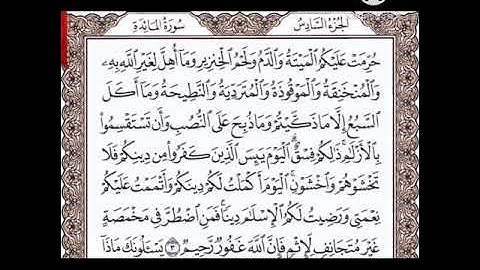 الجزء السادس سورة المائدة
حُرِّمَتْ عَلَيْكُمُ ٱلْمَيْتَةُ وَٱلدَّمُ وَلَحْمُ ٱلْخِنزِيرِ وَمَآ أُهِلَّ لِغَيْرِ ٱللَّهِ بِهِۦ
وَٱلْمُنْخَنِقَةُ وَٱلْمَوْقُوذَةُ وَٱلْمُتَرَدِّيَةُ وَٱلنَّطِيحَةُ وَمَآ أَكَلَ
ٱلسَّبُعُ إِلَّا مَا ذَكَّيْتُمْ وَمَا ذُبِحَ عَلَى ٱلنُّصُبِ وَأَن تَسْتَقْسِمُوا۟
بِٱلْأَزْلَٰمِ ذَٰلِكُمْ فِسْقٌ ٱلْيَوْمَ يَئِسَ ٱلَّذِينَ كَفَرُوا۟ مِن دِينِكُمْ فَلَا
تَخْشَوْهُمْ وَٱخْشَوْنِ ٱلْيَوْمَ أَكْمَلْتُ لَكُمْ دِينَكُمْ وَأَتْمَمْتُ عَلَيْكُمْ
نِعْمَتِى وَرَضِيتُ لَكُمُ ٱلْإِسْلَٰمَ دِينًا فَمَنِ ٱضْطُرَّ فِى مَخْمَصَةٍ
غَيْرَ مُتَجَانِفٍ لِّإِثْمٍ فَإِنَّ ٱللَّهَ غَفُورٌ رَّحِيمٌ ٣ يَسْـَٔلُونَكَ مَاذَآ